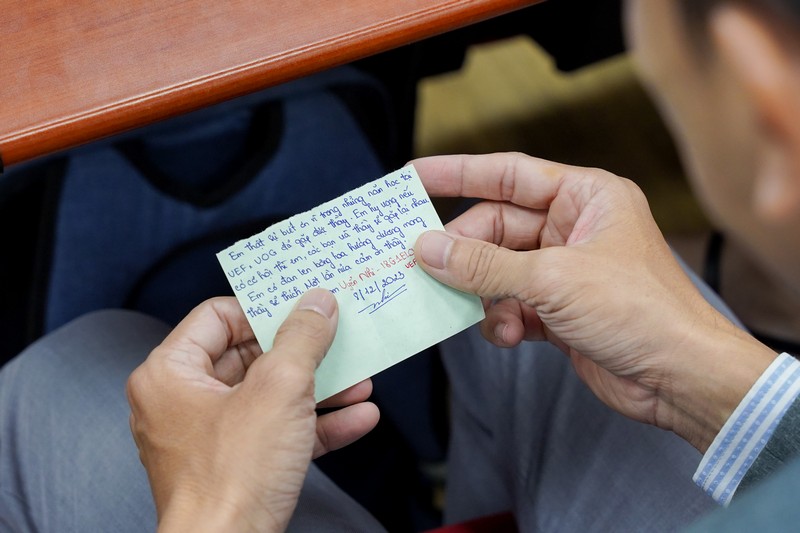 Em thật sự biết ơn vì trong những năm học tại
UEF, UOG đã gặp được thầy. Em hy vọng nếu
có cơ hội thì em, các bạn và thầy sẽ gặp lại nhau
Em có đan len bông hoa hướng dương mong
thầy sẽ thích. Một lần nữa cảm ơn thầy.
Uyển Nhi - 18G1ELO
UEF
8/12/2023